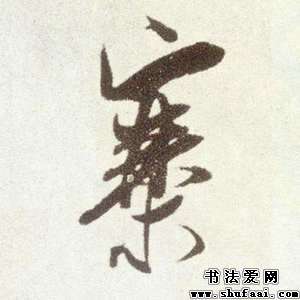 寨
书法爱网
www.shufaai.com